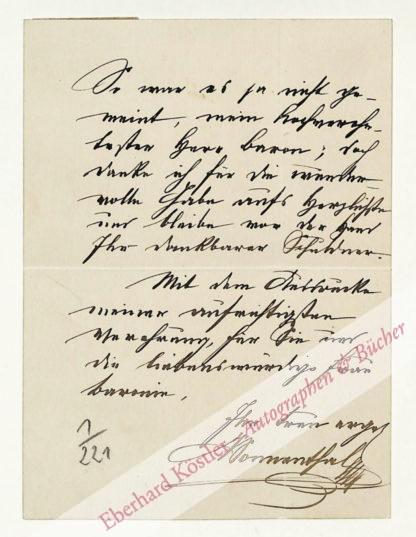 So war es ja nicht ge-
meint, mein hochvereh-
tester Herr Baron; doch
danke ich für die wunder-
volle Gabe aufs Herzlichste
und bleibe vor der Hand
Ihr dankbarer Schuldner.
Mit dem Ausdrucke
meiner aufrichtigsten
Verehrung, für Sie und
die liebenswürdige Frau
Baronin,
Ihr treu ergeb
Sonnenthal
1/221
Eberhard Köstler Autographen & Bücher